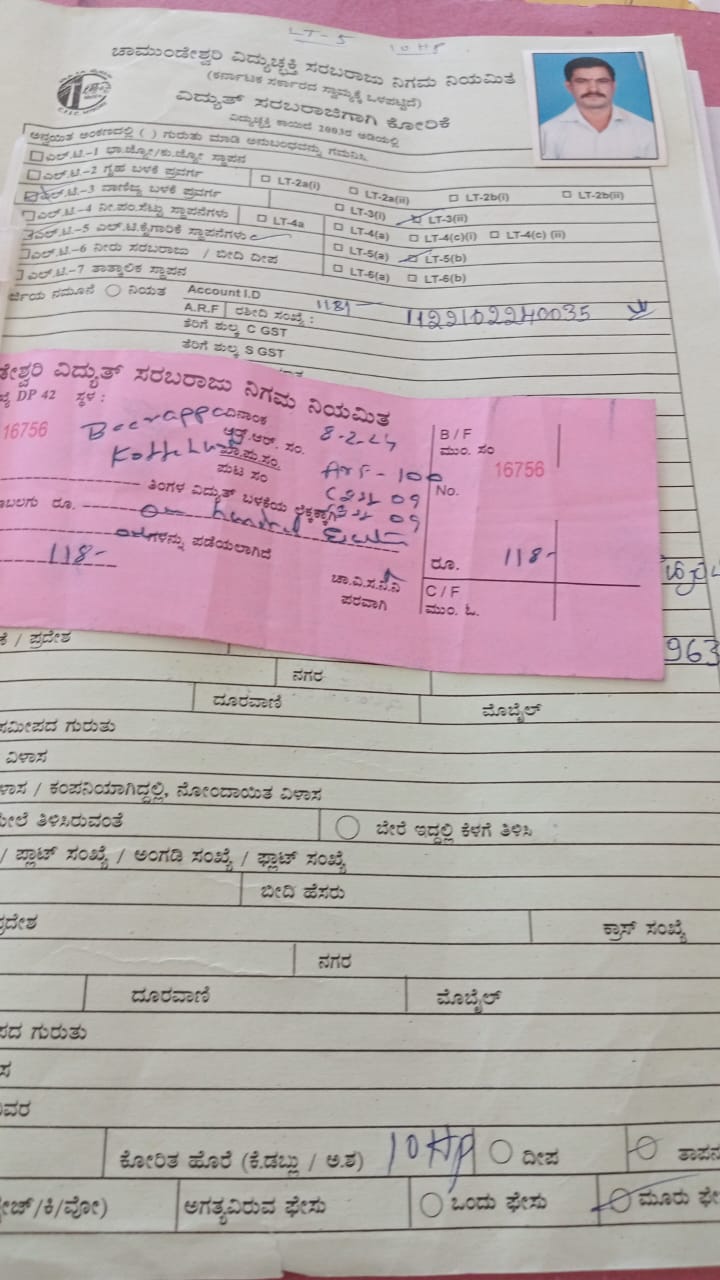 LT-5 10HP
ಚಾಮುಂಡೇಶ್ವರಿ ವಿದ್ಯುಚ್ಛಕ್ತಿ ಸರಬರಾಜು ನಿಗಮ ನಿಯಮಿತ
(ಕರ್ನಾಟಕ ಸರ್ಕಾರದ ಸ್ವಾಮ್ಯಕ್ಕೆ ಒಳಪಟ್ಟಿದೆ)
ವಿದ್ಯುತ್ ಸರಬರಾಜಿಗಾಗಿ ಕೋರಿಕೆ
ವಿದ್ಯುಚ್ಛಕ್ತಿ ಕಾಯಿದೆ 2003ರ ಅಡಿಯಲ್ಲಿ
ಅನ್ವಯಿತ ಅಂಕಣದಲ್ಲಿ ( ) ಗುರುತು ಮಾಡಿ ಅನುಬಂಧವನ್ನು ಗಮನಿಸಿ
ಎಲ್.ಟಿ.-1 ಭಾ.ಜ್ಯೋ/ಕು.ಜ್ಯೋ ಸ್ಥಾಪನ
ಎಲ್.ಟಿ.-2 ಗೃಹ ಬಳಕೆ ಪ್ರವರ್ಗ LT-2a(i) LT-2a(ii) LT-2b(i) LT-2b(ii)
ಎಲ್.ಟಿ.-3 ವಾಣಿಜ್ಯ ಬಳಕೆ ಪ್ರವರ್ಗ LT-3(i) LT-3(ii)
ಎಲ್.ಟಿ.-4 ನೀ.ಪಂ.ಸೆಟ್ಟು ಸ್ಥಾಪನೆಗಳು LT-4a LT-4(a) LT-4(c)(i) LT-4(c) (ii)
ಎಲ್.ಟಿ.-5 ಎಲ್.ಟಿ.ಕೈಗಾರಿಕೆ ಸ್ಥಾಪನೆಗಳು LT-5(a) LT-5(b)
ಎಲ್.ಟಿ.-6 ನೀರು ಸರಬರಾಜು / ಬೀದಿ ದೀಪ LT-6(a) LT-6(b)
ಎಲ್.ಟಿ.-7 ತಾತ್ಕಾಲಿಕ ಸ್ಥಾಪನ
ನಮೂನೆ ನಿಯತ Account I.D
A.R.F ರಶೀದಿ ಸಂಖ್ಯೆ : 118/- 1122102240035
ತೆರಿಗೆ ಶುಲ್ಕ C GST
ತೆರಿಗೆ ಶುಲ್ಕ S GST
ಡೇಶ್ವರಿ ವಿದ್ಯುತ್ ಸರಬರಾಜು ನಿಗಮ ನಿಯಮಿತ
DP 42 ಸ್ಥಳ :
16756 Beerappa ದಿನಾಂಕ 8-2-24 B/F
ಆರ್.ಆರ್. ಸಂ. ಮುಂ. ಸಂ
ಪುಟ ಸಂ ARF - 100 No. 16756
ತಿಂಗಳ ವಿದ್ಯುತ್ ಬಳಕೆಯ ಲೆಕ್ಕಕ್ಕಾಗಿ CGST 09
SGST 09
ರೂ.
ಗಳನ್ನು ಪಡೆಯಲಾಗಿದೆ
118- ರೂ. 118-
ಚಾ.ವಿ.ಸ.ನಿ.ನಿ C/F
ಪರವಾಗಿ ಮುಂ. ಓ.
963
/ ಪ್ರದೇಶ
ನಗರ
ದೂರವಾಣಿ ಮೊಬೈಲ್
ಸಮೀಪದ ಗುರುತು
ವಿಳಾಸ
/ ಕಂಪನಿಯಾಗಿದ್ದಲ್ಲಿ, ನೋಂದಾಯಿತ ವಿಳಾಸ
ಮೇಲೆ ತಿಳಿಸಿರುವಂತೆ ಬೇರೆ ಇದ್ದಲ್ಲಿ ಕೆಳಗೆ ತಿಳಿಸಿ
/ ಪ್ಲಾಟ್ ಸಂಖ್ಯೆ / ಅಂಗಡಿ ಸಂಖ್ಯೆ / ಫ್ಲಾಟ್ ಸಂಖ್ಯೆ
ಬೀದಿ ಹೆಸರು
ಪ್ರದೇಶ ಕ್ರಾಸ್ ಸಂಖ್ಯೆ
ನಗರ
ದೂರವಾಣಿ ಮೊಬೈಲ್
ಪದ ಗುರುತು
ಕೋರಿತ ಹೊರೆ (ಕೆ.ಡಬ್ಲು / ಅ.ಶ) 10 HP ದೀಪ ತಾಪನ
ಅಗತ್ಯವಿರುವ ಫೇಸು ಒಂದು ಫೇಸು ಮೂರು ಫೇ